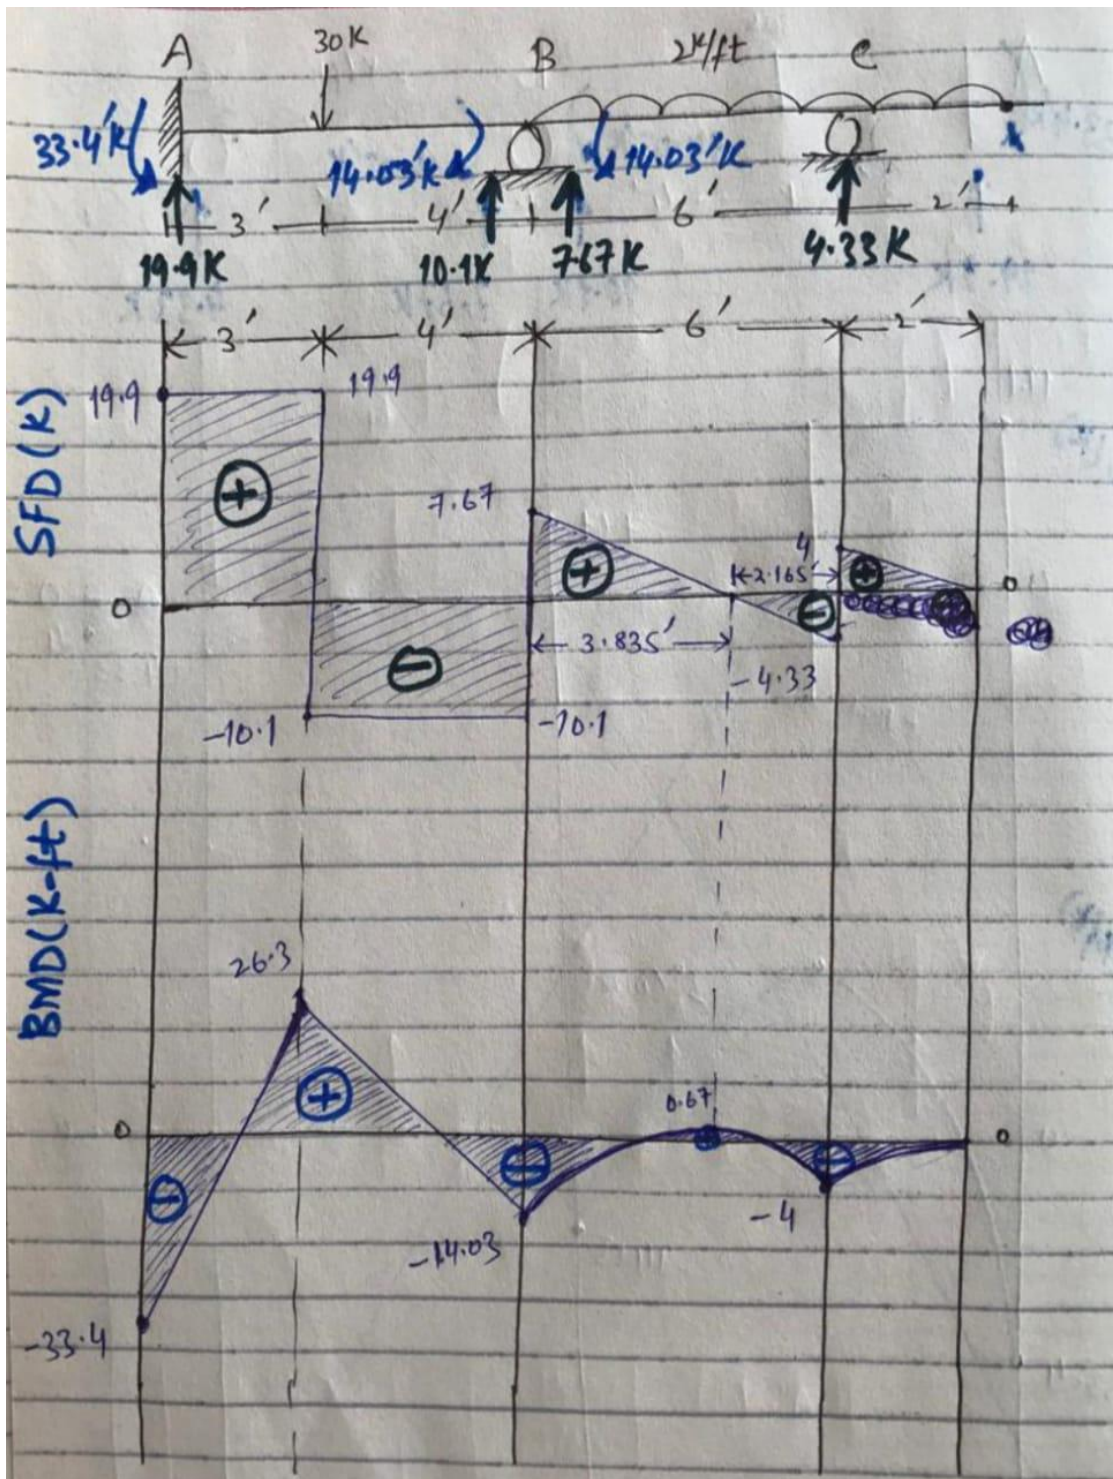 A 30K B 2K/ft C
33.4'K 14.03'K 14.03'K
3' 4' 6' 2'
19.9K 10.1K 7.67K 4.33K
3' 4' 6' 2'
SFD(K)
19.9 19.9
7.67 4
+ + 2.165' + 0
0 -
- 3.835'
-4.33
-10.1 -10.1
BMD(K-ft)
26.3
+ 0.67
0 - - 0
-
-14.03 -4
-33.4